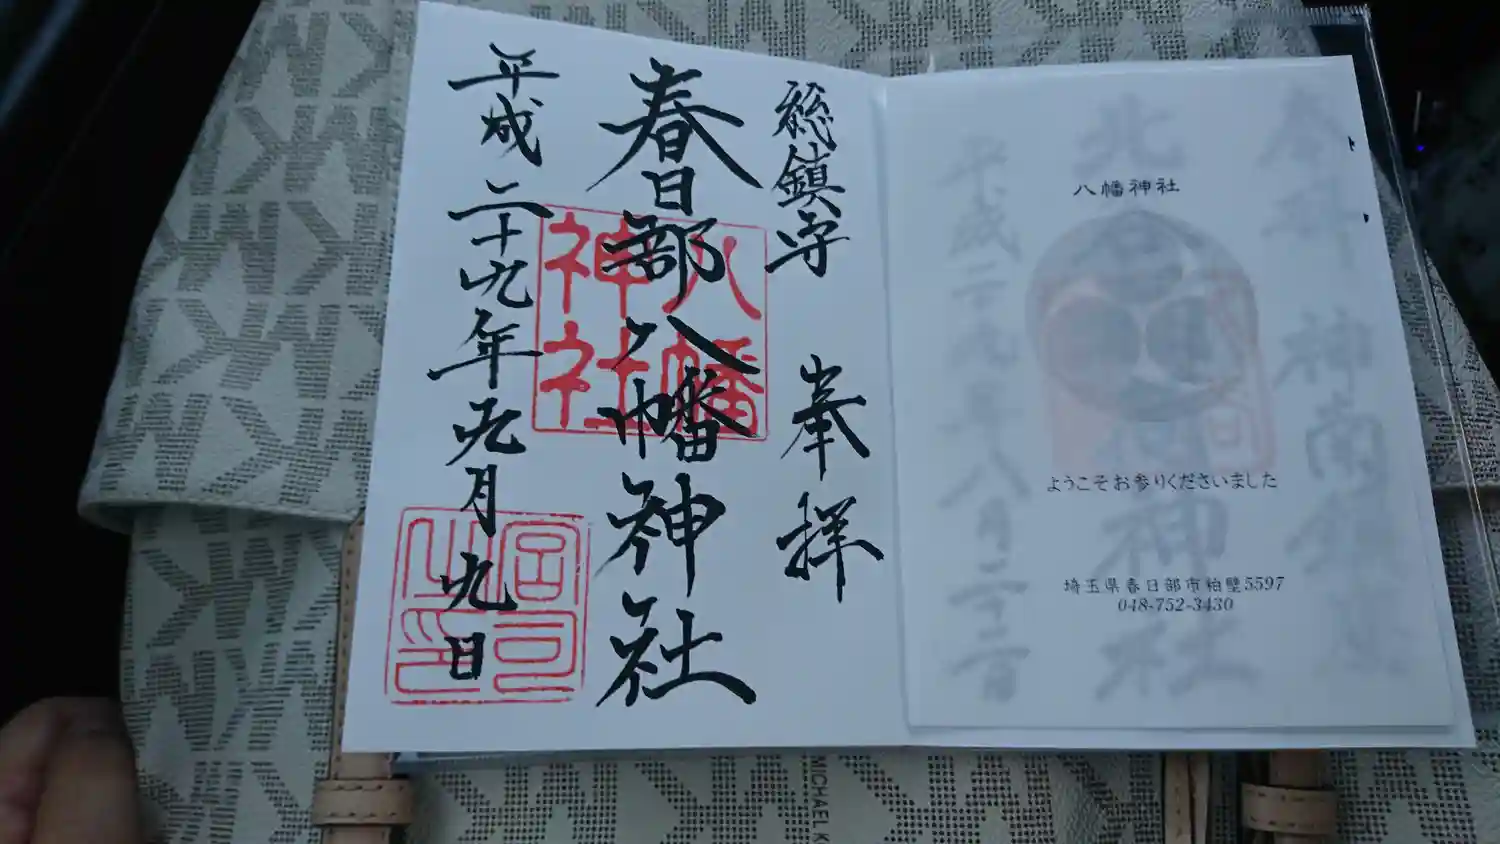 総鎮守 奉拝
春日部八幡神社
平成二十九年元月九日
八幡神社
宮司之印
八幡神社
ようこそお参りくださいました
埼玉県春日部市粕壁5597
048-752-3430
MICHAEL K